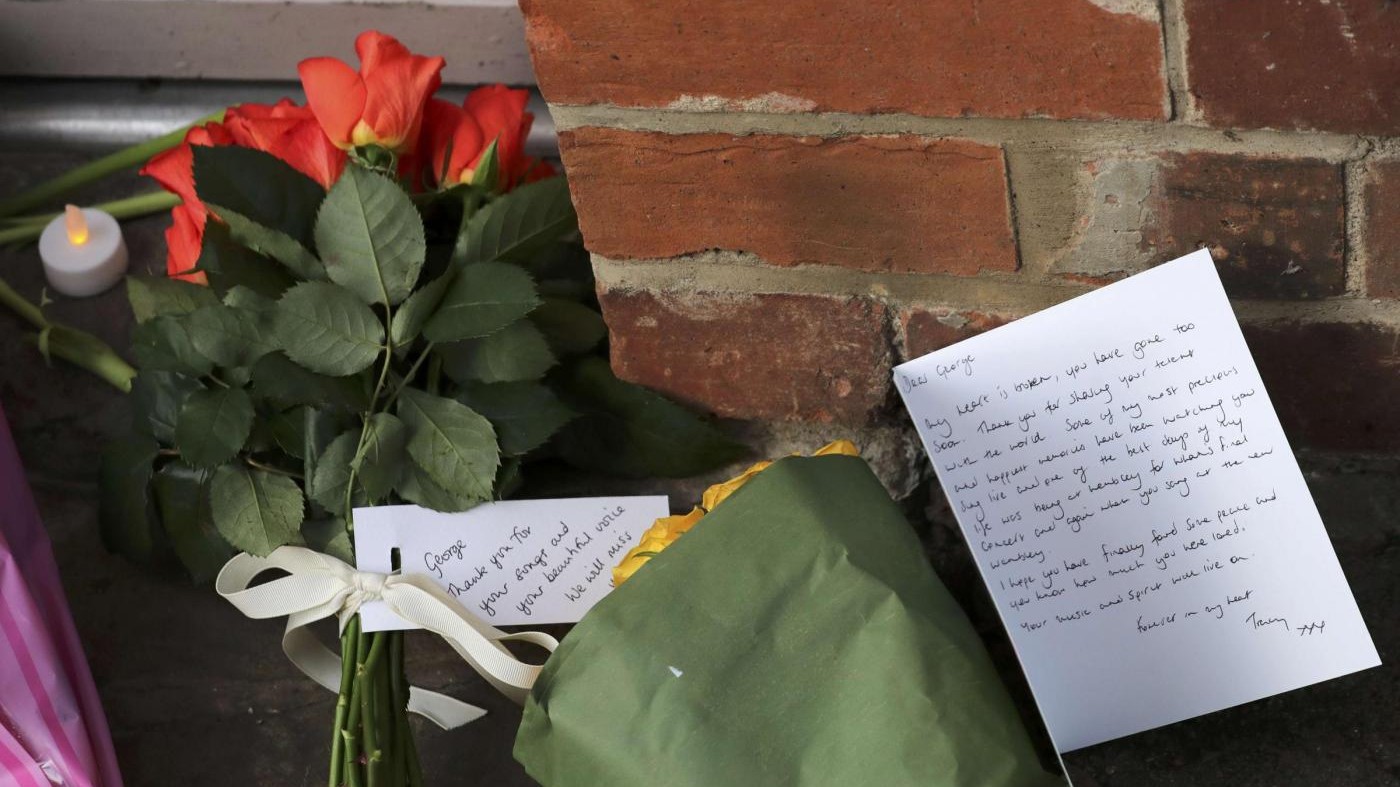 George
Thank you for
your songs and
your beautiful voice
We will miss
Dear George
My heart is broken, you have gone too
soon. Thank you for sharing your talent
with the world. Some of my most precious
and happiest memories have been watching you
sing live and one of the best days of my
life was being at Wembley for wham's final
concert and again when you sang at the new
Wembley.
I hope you have finally found some peace and
you know how much you were loved.
Your music and spirit will live on.
Forever in my heart
Tracy xxx